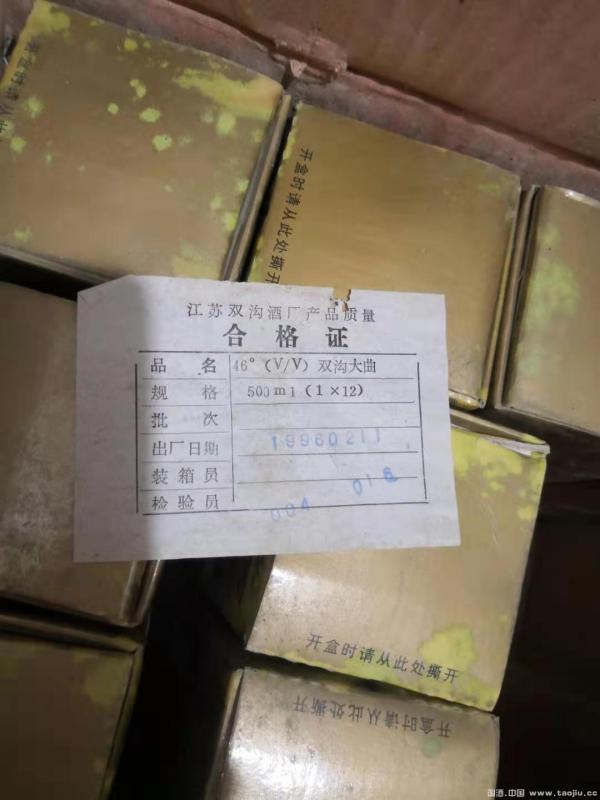 开盒时请从此处
开盒时请从此处撕开
江苏双沟酒厂产品质量
合格证
品名 46°(V/V)双沟大曲
规格 500ml(1×12)
批次
出厂日期 19960211
装箱员 018
检验员 004
开盒时请从此处撕开
开盒时请从此处撕开
淘酒.中国 www.taojiu.cc